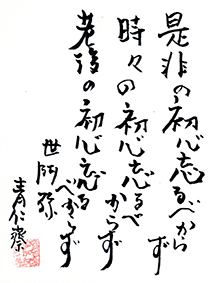 是非の初心忘るべからず
時々の初心忘るべからず
老後の初心忘るべからず
世阿弥